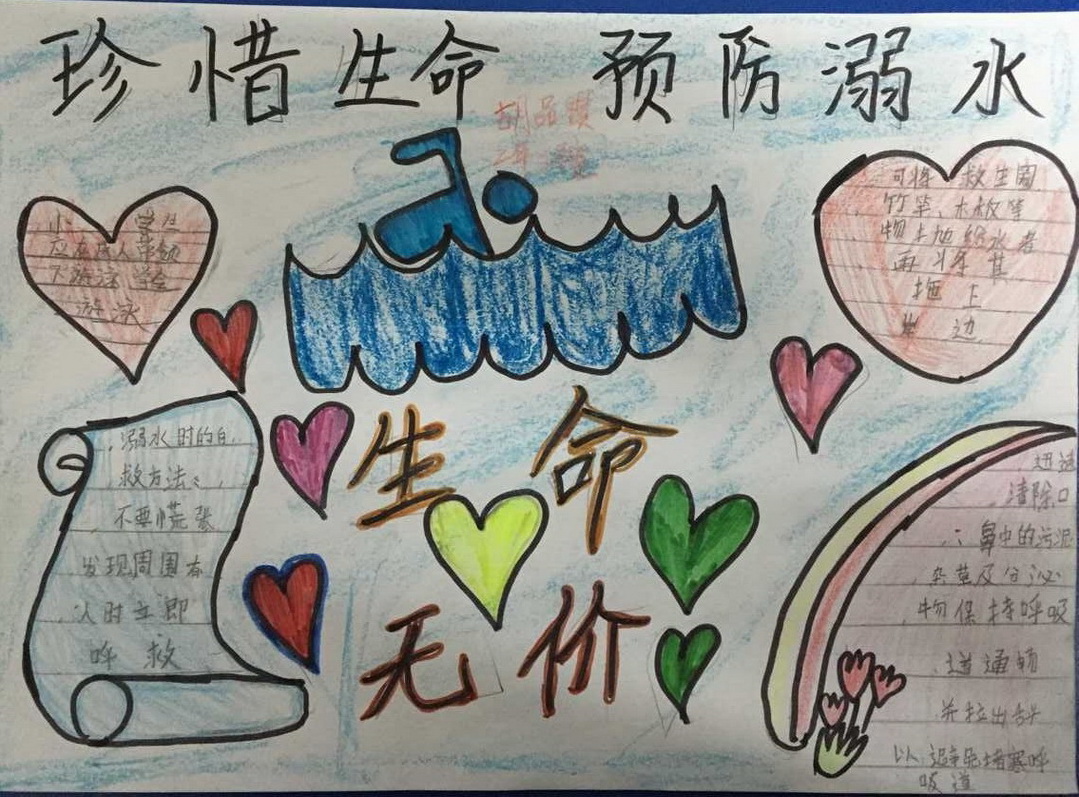 珍惜生命 预防溺水
胡品
2年
小 学生
应在成人带领
下游泳学会
游泳
可将 救生圈
竹竿、木板等
物土地给水者
再将其
拖上
岸边
溺水时的自
救方法:
不要慌张
发现周围有
人时立即
呼救
生命
无价
迅速
清除口
、鼻中的污泥
杂草及分泌
物保持呼吸
道通畅
并拉出舌
以避免堵塞呼
吸道